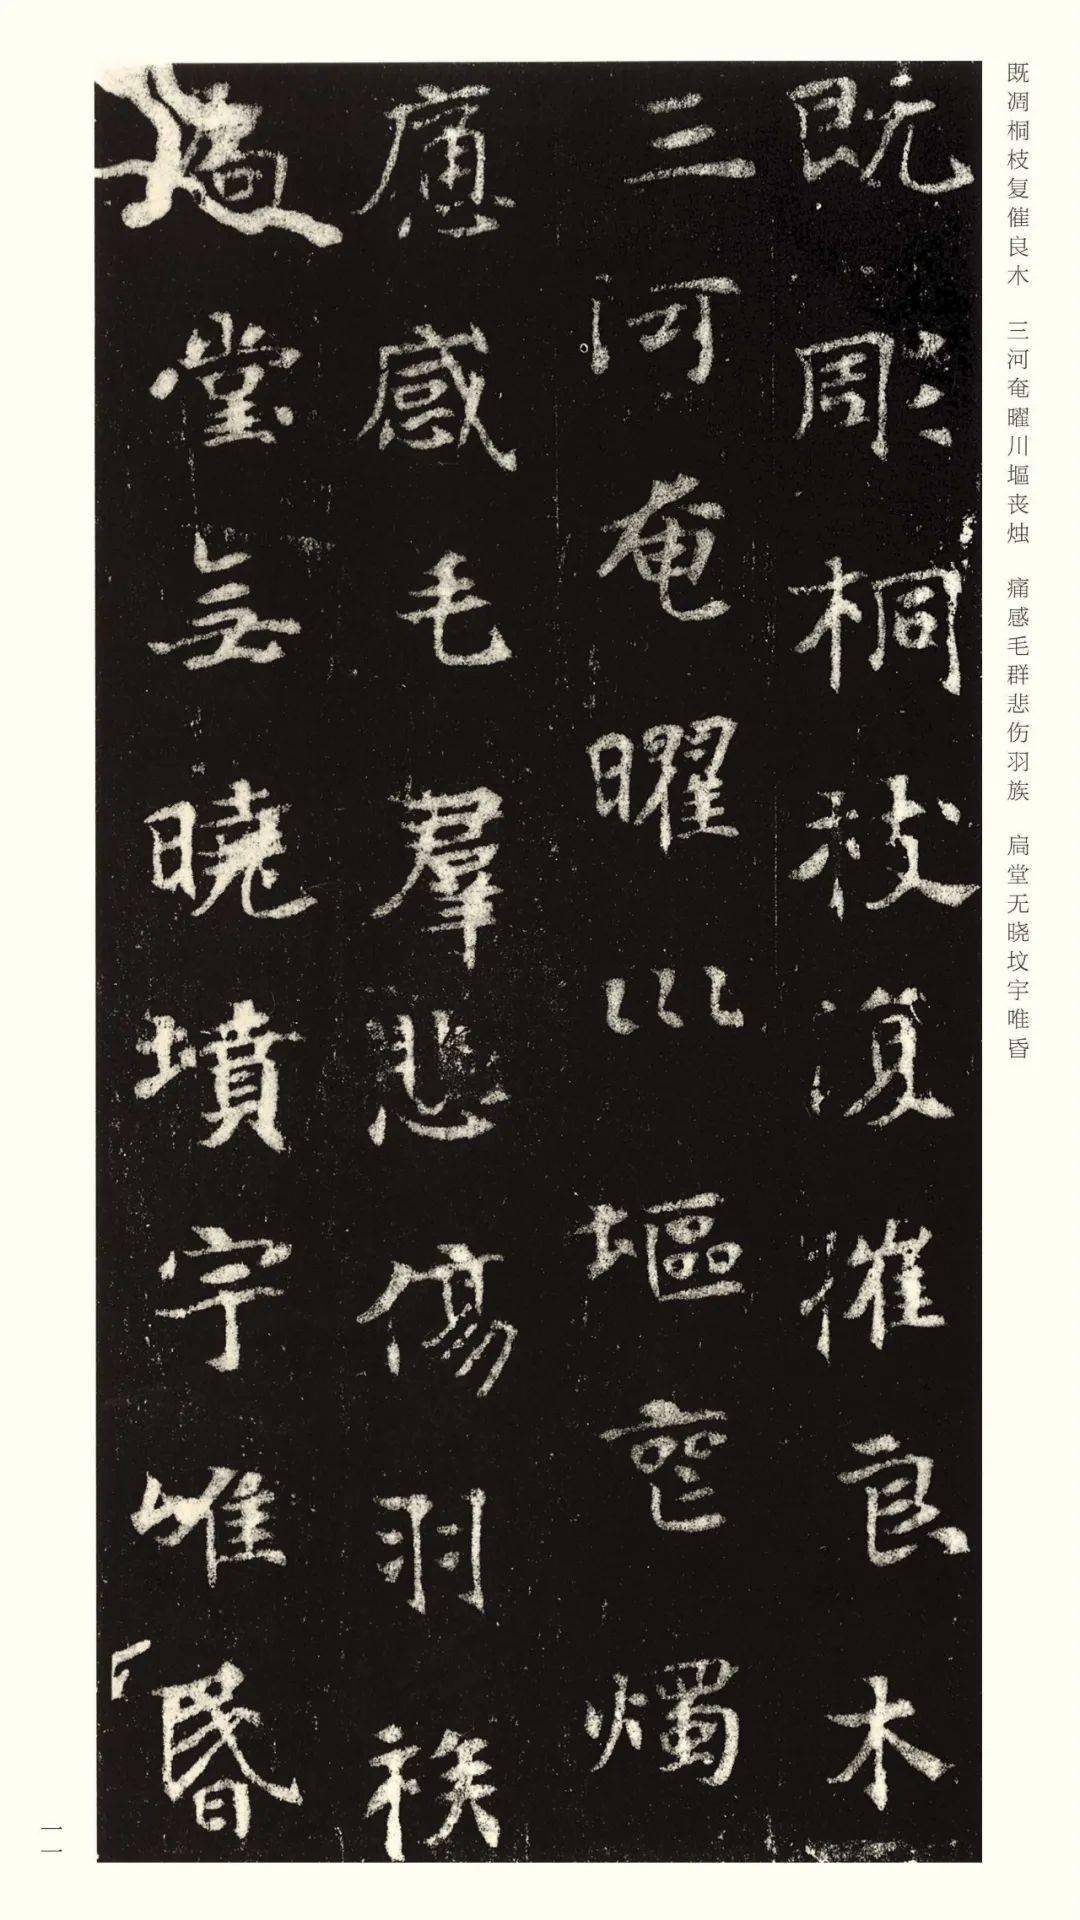 既凋桐枝复催良木　三河奄曜川塸丧烛　痛感毛群悲伤羽族　扃堂无晓坟宇唯昏
既彫桐枝復摧良木
三河奄曜川塸喪燭
痛感毛羣悲傷羽族
扃堂无曉墳宇唯昏
一一